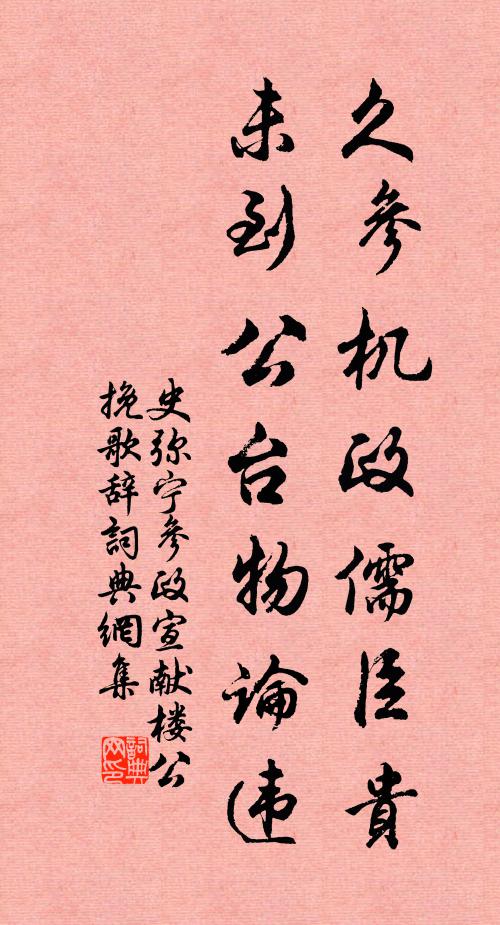 久参机政儒臣貴
未到公台物論违
史弥宁参政宣献楼公
挽歌辞詞典網集
詞典网印